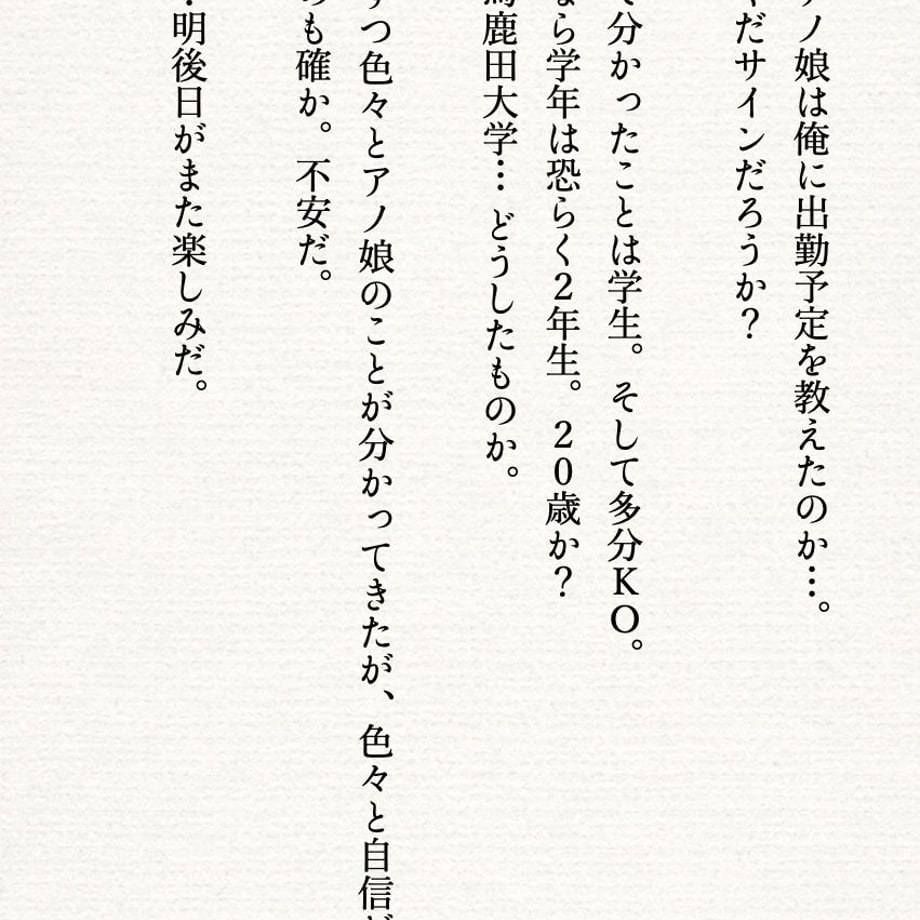 アノ娘は俺に出勤予定を教えたのか…。
だサインだろうか？
分かったことは学生。そして多分KO。
なら学年は恐らく2年生。20歳か？
馬鹿田大学… どうしたものか。
ずつ色々とアノ娘のことが分かってきたが、色々と自信が
も確か。不安だ。
明後日がまた楽しみだ。